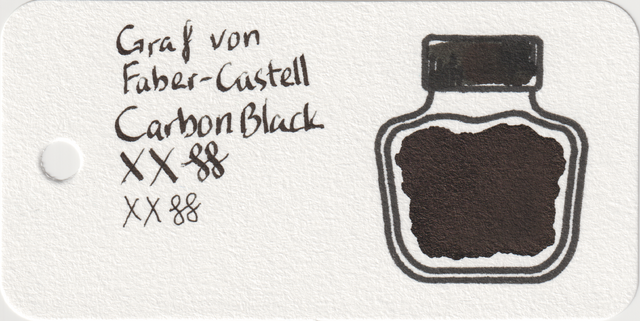 Graf von
Faber-Castell
Carbon Black
XX 88
XX 88